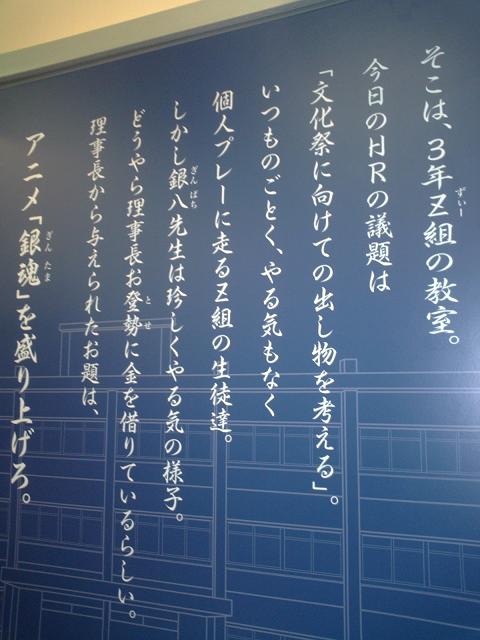 そこは、3年Z組の教室。
今日のHRの議題は
「文化祭に向けての出し物を考える」。
いつものごとく、やる気もなく
個人プレーに走るZ組の生徒達。
しかし銀八先生は珍しくやる気の様子。
どうやら理事長お登勢に金を借りているらしい。
理事長から与えられたお題は、
アニメ「銀魂」を盛り上げろ。